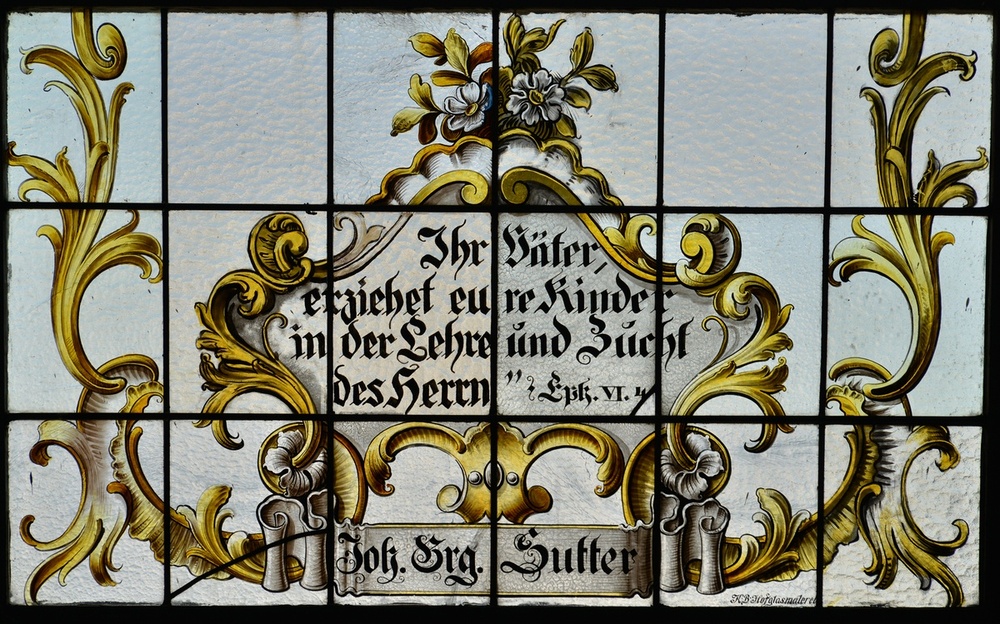 Ihr Väter,
erziehet eure Kinder
in der Lehre und Zucht
des Herrn " Eph. VI. 4
Joh. Grg. Sutter
K.B. Hofglasmalerei